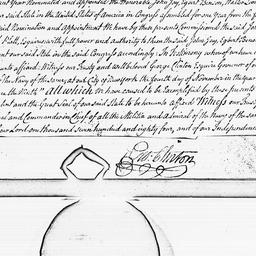 Year Nominated and appointed the Honorable John Jay, Egbert Benson, Walter
said State in the United States of America in Congress assembled for one year from the
said Nomination and appointment have by these presents Commissioned the said
Platt, Esquires with full Power and authority to them the said John Jay, Egbert Benson
sent our said State in the said Congress accordingly. In Testimony whereof we have
to be affixed. Witness our Trusty and well beloved George Clinton Esquire Governor of
the Navy of the same, at our City of New York the fourth day of November in the year
the Ninth" all which we have caused to be Exemplified by these presents
and the Great Seal of our said State to be hereunto affixed Witness our
and Commander in Chief of all the Militia and Admiral of the Navy of the
our Lord one thousand seven hundred and eighty four, and of our Independence
Geo. Clinton